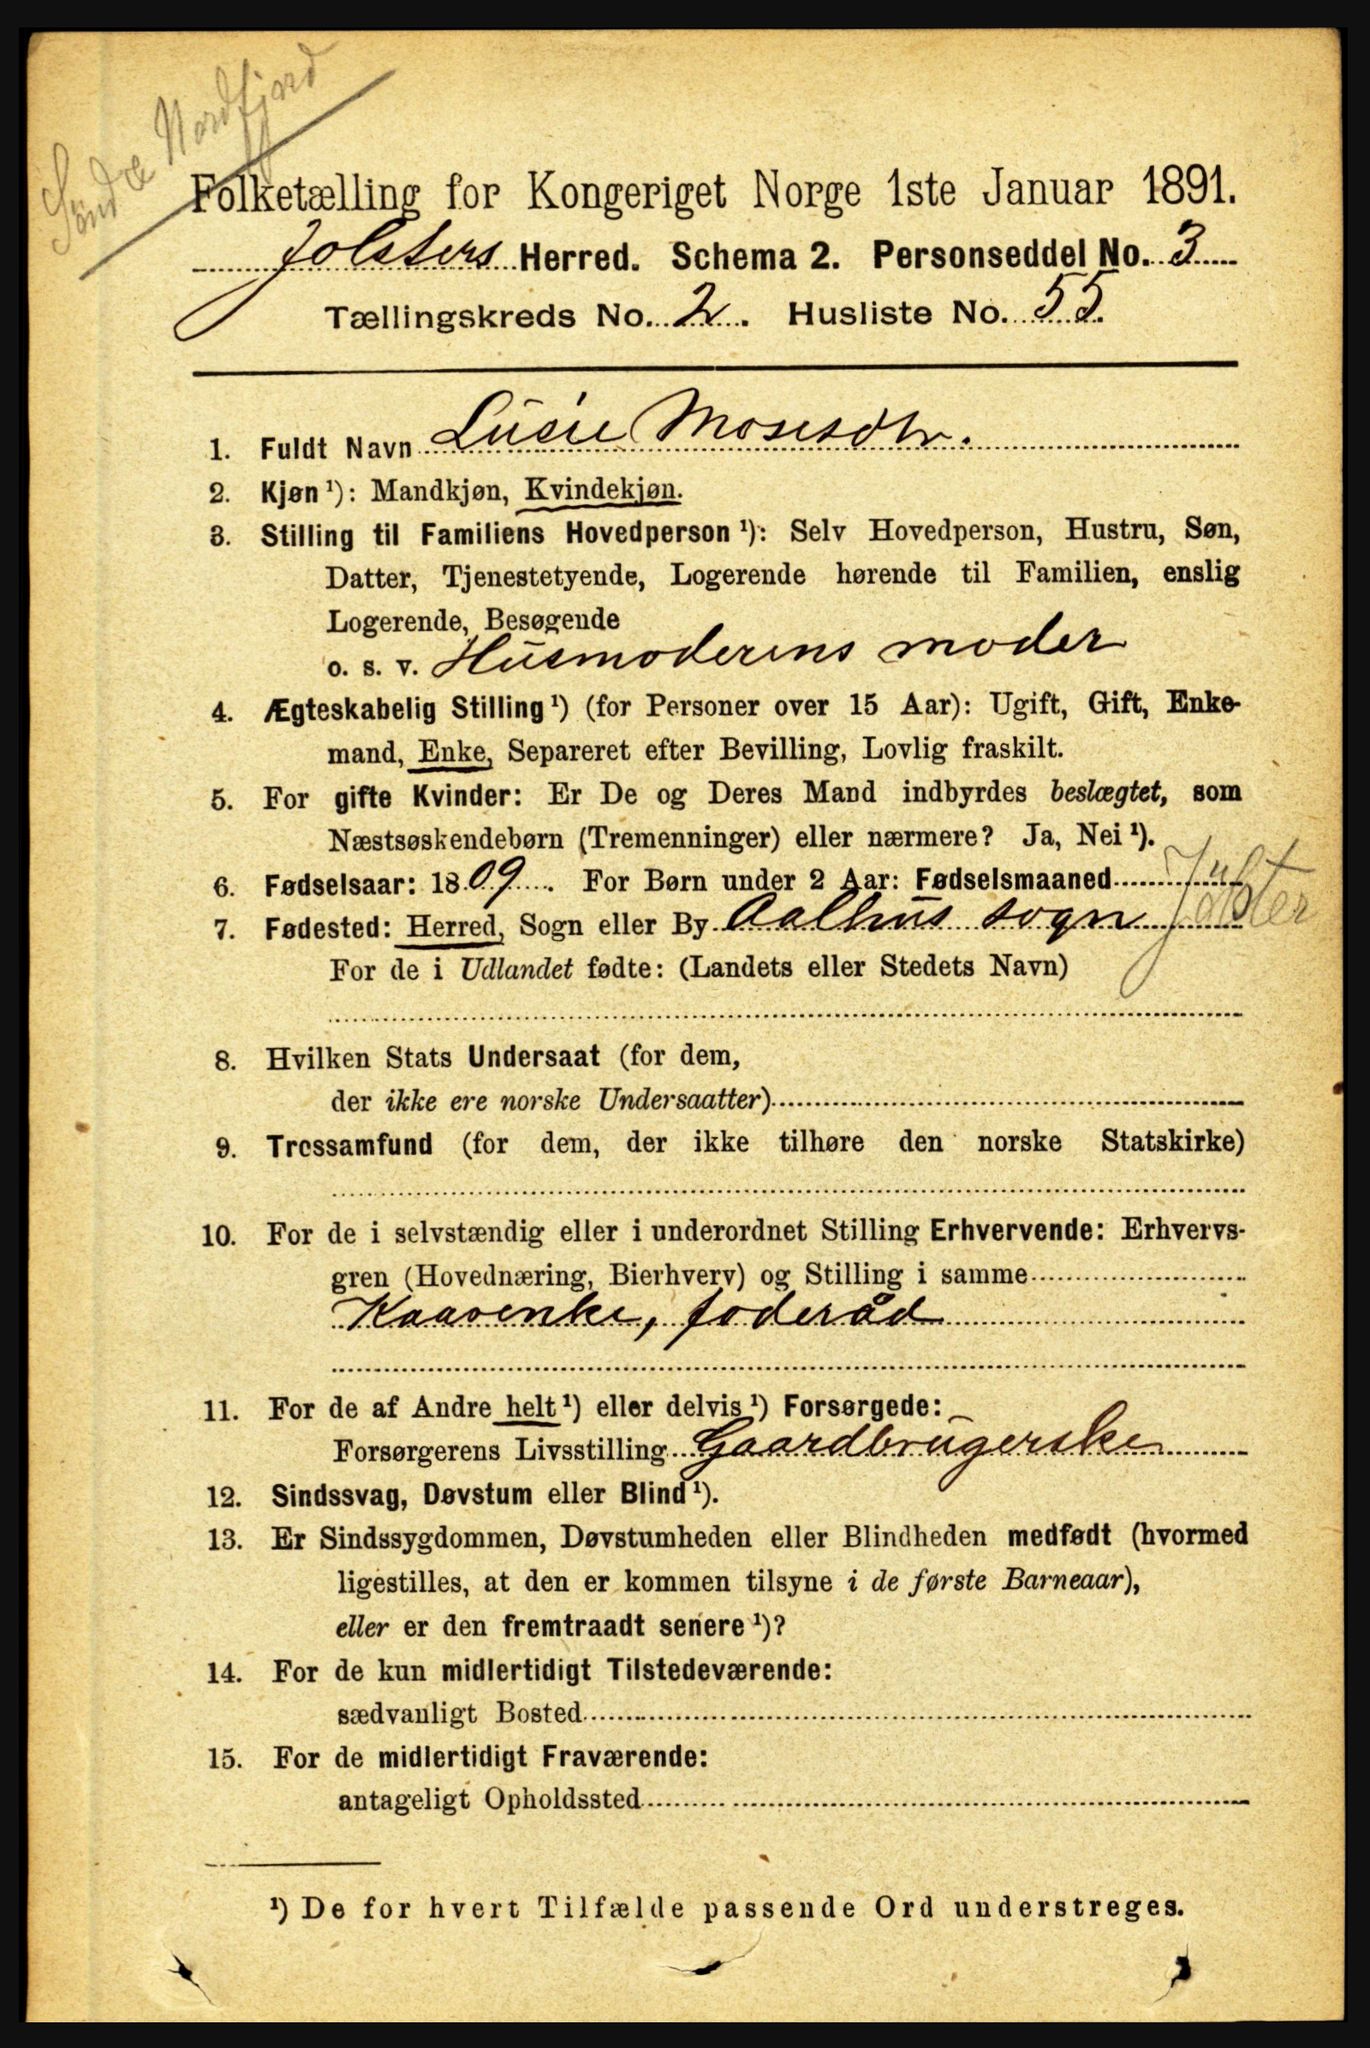 Söndre Nordfjord
Folketælling for Kongeriget Norge 1ste Januar 1891.
Jolsters Herred. Schema 2. Personseddel No. 3
Tællingskreds No. 2. Husliste No. 55.
1. Fuldt Navn Lucie Mosesdtr.
2. Kjøn ¹): Mandkjøn, Kvindekjøn.
3. Stilling til Familiens Hovedperson ¹): Selv Hovedperson, Hustru, Søn,
Datter, Tjenestetyende, Logerende hørende til Familien, enslig
Logerende, Besøgende
o. s. v. Husmoderens moder
4. Ægteskabelig Stilling ¹) (for Personer over 15 Aar): Ugift, Gift, Enke-
mand, Enke, Separeret efter Bevilling, Lovlig fraskilt.
5. For gifte Kvinder: Er De og Deres Mand indbyrdes beslægtet, som
Næstsøskendebørn (Tremenninger) eller nærmere? Ja, Nei ¹).
6. Fødselsaar: 1809. For Børn under 2 Aar: Fødselsmaaned
7. Fødested: Herred, Sogn eller By Aalhus sogn Jølster
For de i Udlandet fødte: (Landets eller Stedets Navn)
8. Hvilken Stats Undersaat (for dem,
der ikke ere norske Undersaatter)
9. Trossamfund (for dem, der ikke tilhøre den norske Statskirke)
10. For de i selvstændig eller i underordnet Stilling Erhvervende: Erhvervs-
gren (Hovednæring, Bierhverv) og Stilling i samme
Kaarenke, foderåd
11. For de af Andre helt ¹) eller delvis ¹) Forsørgede:
Forsørgerens Livsstilling Gaardbrugerske
12. Sindssvag, Døvstum eller Blind ¹).
13. Er Sindssygdommen, Døvstumheden eller Blindheden medfødt (hvormed
ligestilles, at den er kommen tilsyne i de første Barneaar),
eller er den fremtraadt senere ¹)?
14. For de kun midlertidigt Tilstedeværende:
sædvanligt Bosted
15. For de midlertidigt Fraværende:
antageligt Opholdssted
¹) De for hvert Tilfælde passende Ord understreges.